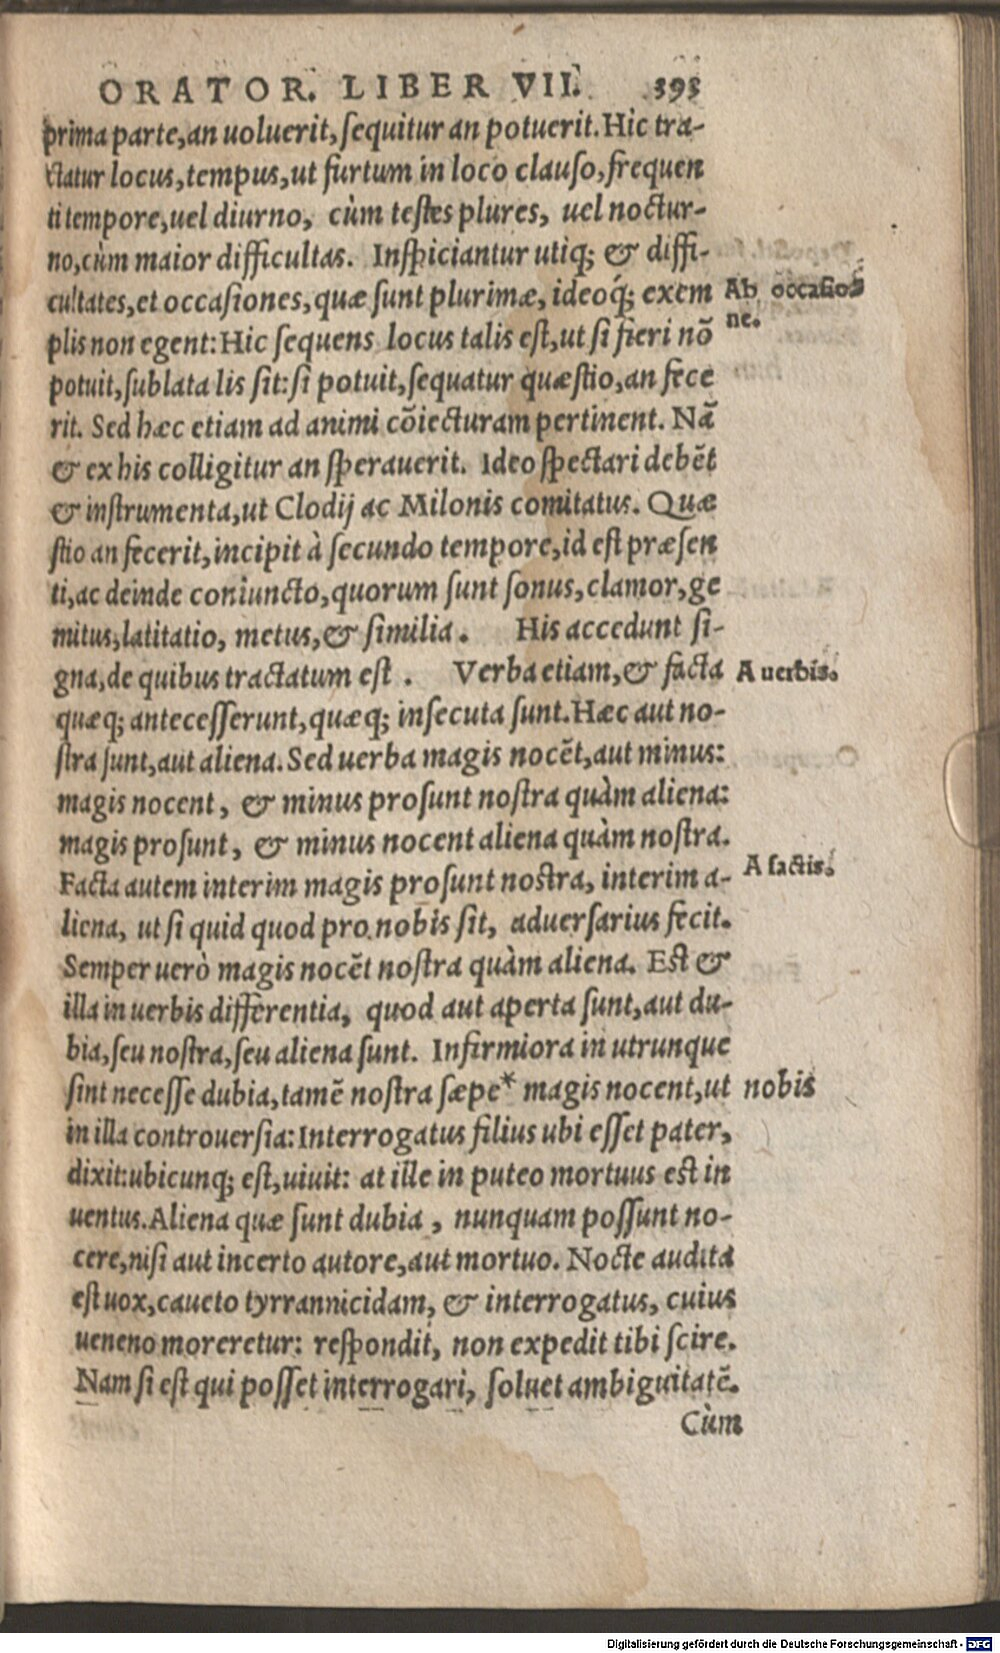 ORATOR. LIBER VII. 393
prima parte, an uoluerit, ſequitur an potuerit. Hic tra-
ctatur locus, tempus, ut furtum in loco clauſo, frequen
ti tempore, uel diurno, cùm teſtes plures, uel noctur-
no, cùm maior difficultas. Inſpiciantur utiq; & diffi-
cultates, et occaſiones, quæ ſunt plurimæ, ideoq́; exem
Ab occaſio-
plis non egent: Hic ſequens locus talis eſt, ut ſi fieri nō
ne.
potuit, ſublata lis ſit: ſi potuit, ſequatur quæſtio, an fece
rit. Sed hæc etiam ad animi cōiecturam pertinent. Nã
& ex his colligitur an ſperauerit. Ideo ſpectari debẽt
& inſtrumenta, ut Clodij ac Milonis comitatus. Quæ
ſtio an fecerit, incipit à ſecundo tempore, id eſt præſen
ti, ac deinde coniuncto, quorum ſunt ſonus, clamor, ge
mitus, latitatio, metus, & ſimilia. His accedunt ſi-
gna, de quibus tractatum eſt. Verba etiam, & facta
A uerbis.
quæq; anteceſſerunt, quæq; inſecuta ſunt. Hæc aut no-
ſtra ſunt, aut aliena. Sed uerba magis nocẽt, aut minus:
magis nocent, & minus proſunt noſtra quàm aliena:
magis proſunt, & minus nocent aliena quàm noſtra.
Facta autem interim magis proſunt noſtra, interim a-
A factis.
liena, ut ſi quid quod pro nobis ſit, aduerſarius fecit.
Semper uerò magis nocẽt noſtra quàm aliena. Eſt &
illa in uerbis differentia, quod aut aperta ſunt, aut du-
bia, ſeu noſtra, ſeu aliena ſunt. Infirmiora in utrunque
ſint neceſſe dubia, tamẽ noſtra ſæpe* magis nocent, ut
nobis
in illa controuerſia: Interrogatus filius ubi eſſet pater,
dixit: ubicunq; eſt, uiuit: at ille in puteo mortuus eſt in
uentus. Aliena quæ ſunt dubia, nunquam poſſunt no-
cere, niſi aut incerto autore, aut mortuo. Nocte audita
eſt uox, caueto tyrannicidam, & interrogatus, cuius
ueneno moreretur: reſpondit, non expedit tibi ſcire.
Nam ſi eſt qui poſſet interrogari, ſoluet ambiguitatẽ.
Cùm
Digitalisierung gefördert durch die Deutsche Forschungsgemeinschaft - DFG